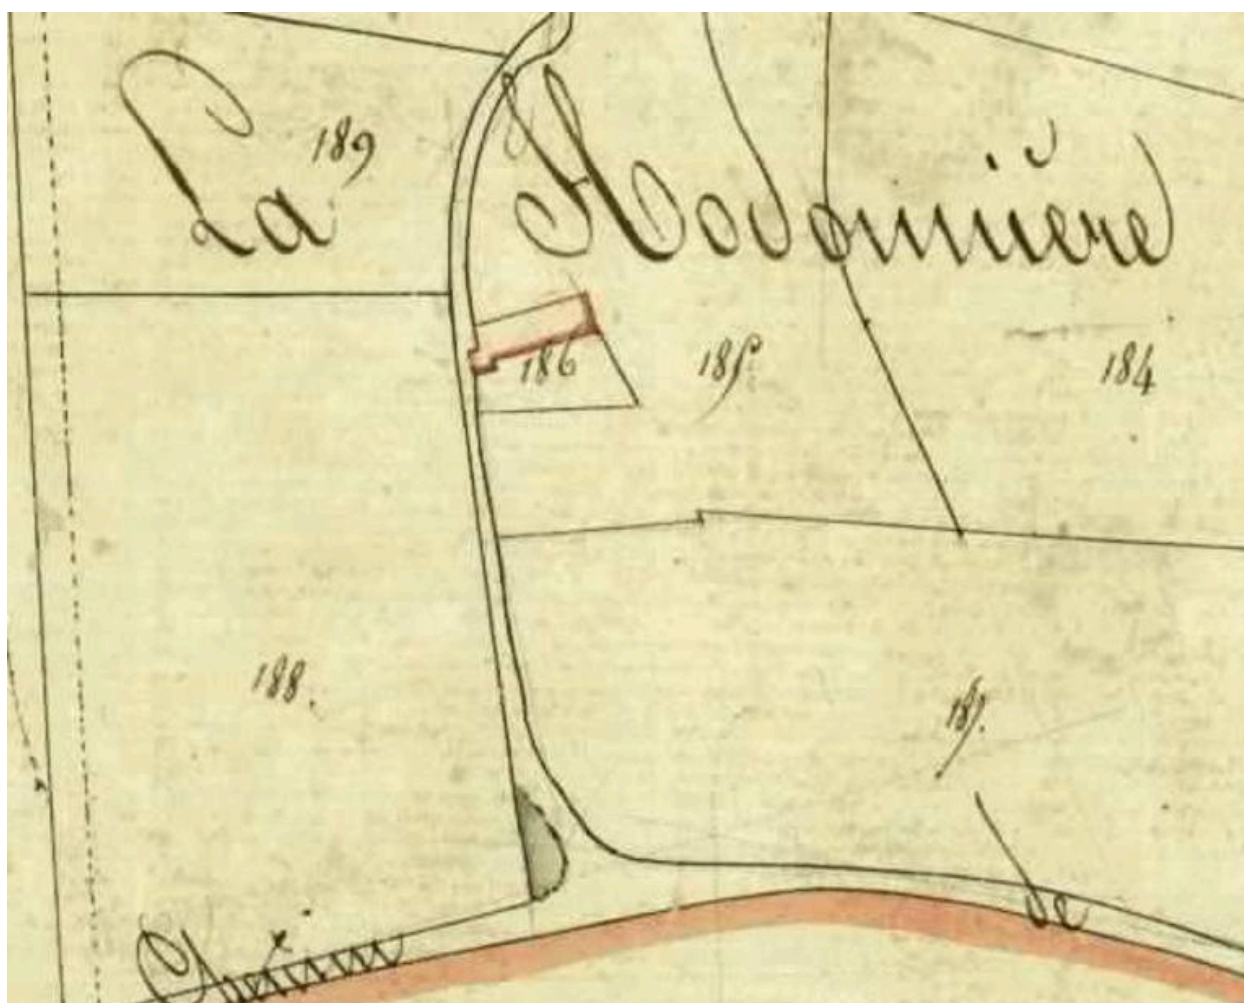 189
La Hodonnière
186 185. 184
188.
187.
Chemin de